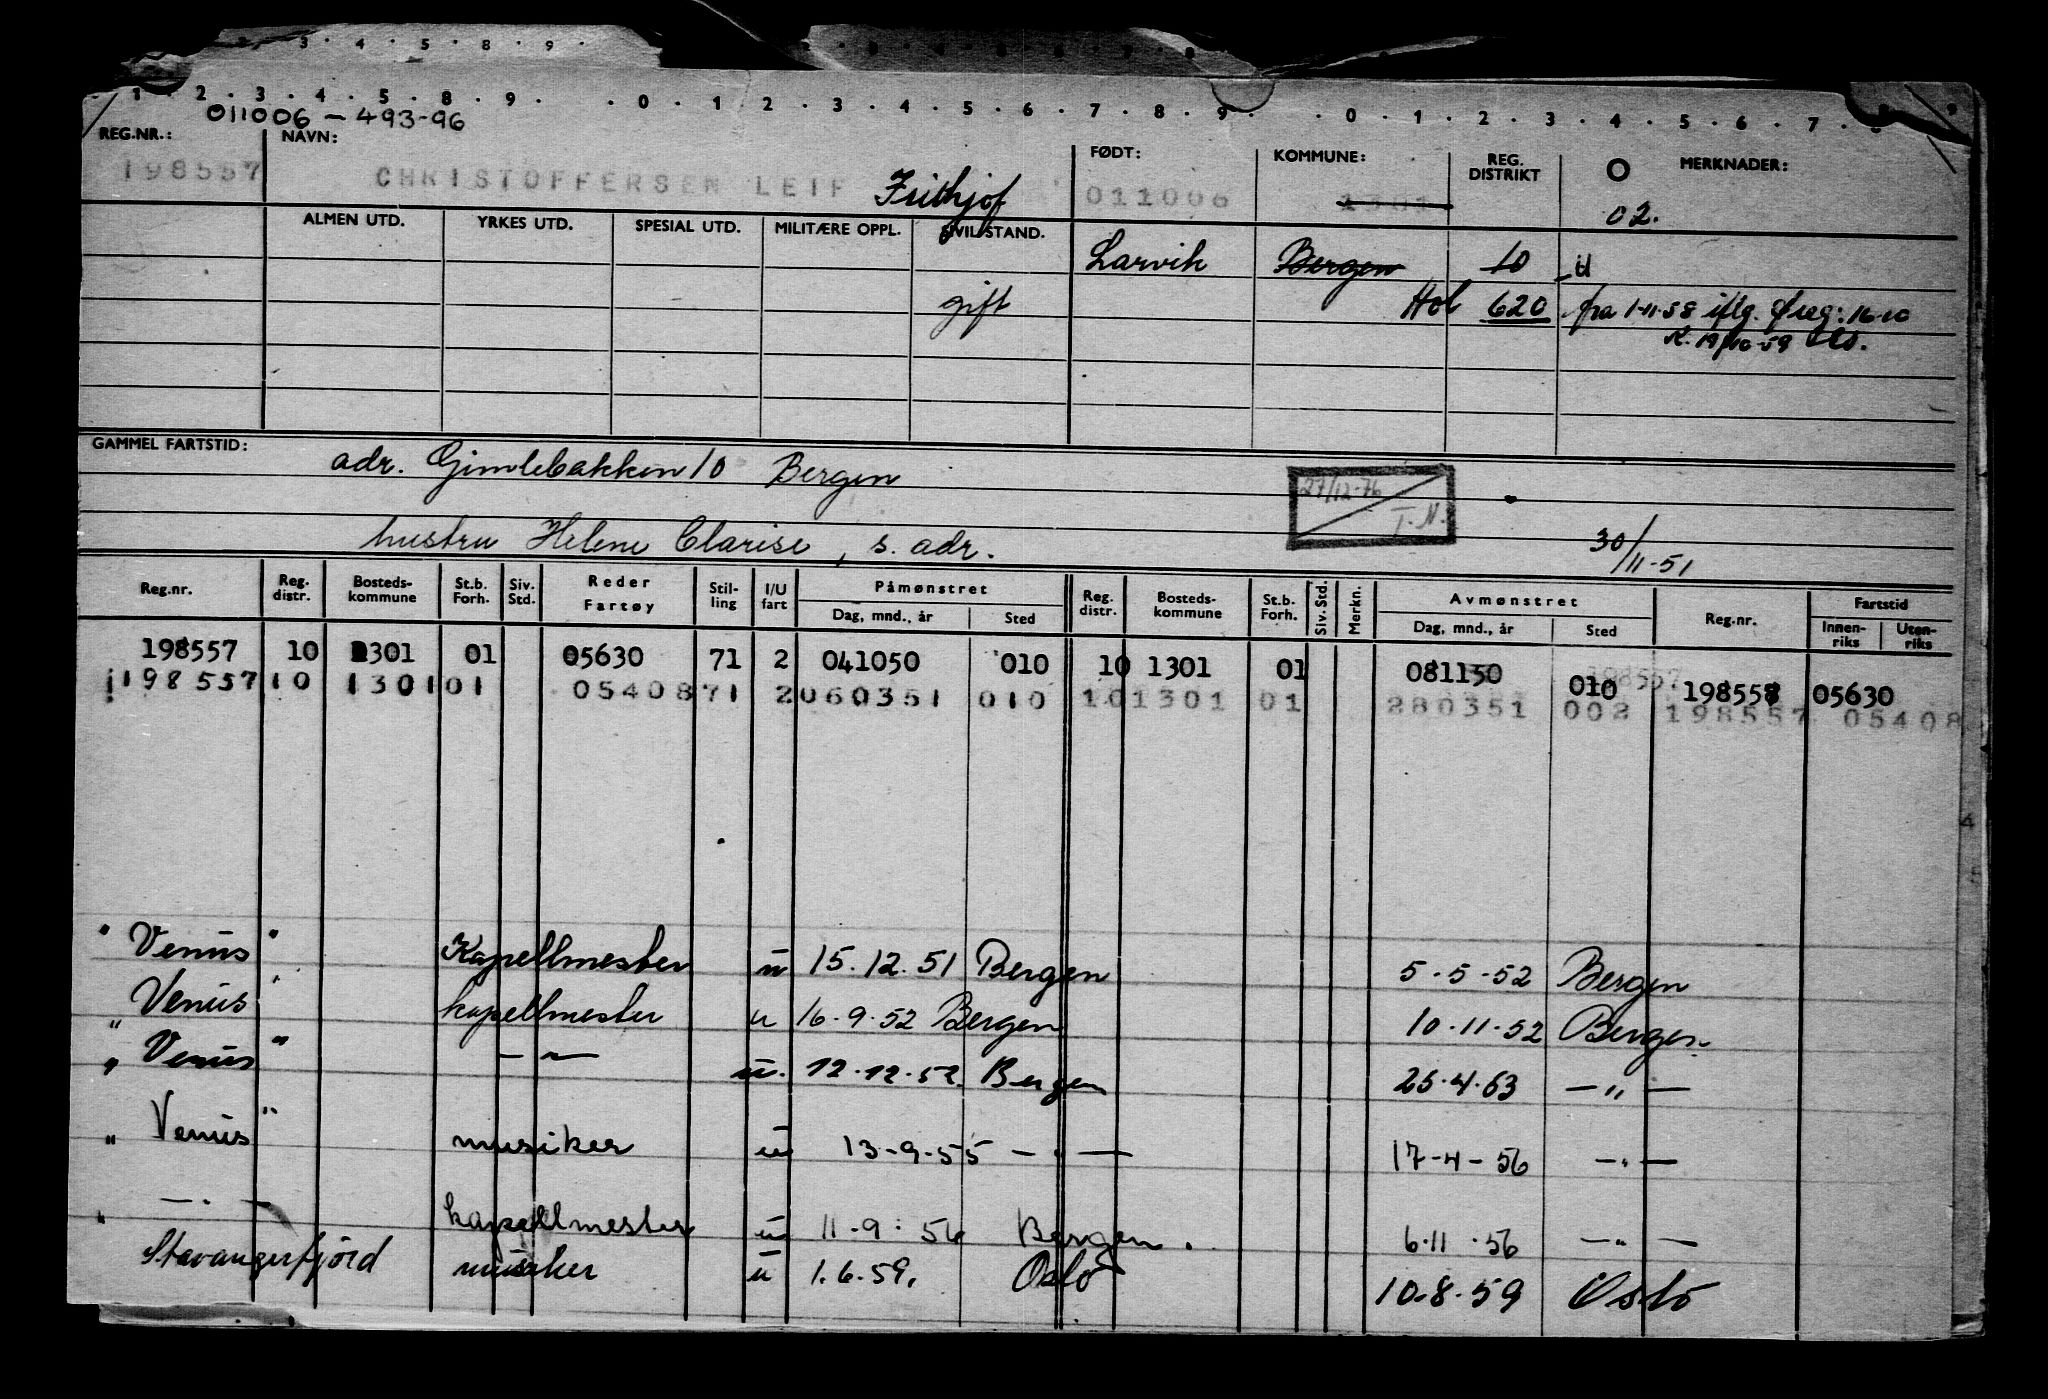 1 · 2 · 3 · 4 · 5 · 8 · 9 · · 0 · 1 · 2 · 3 · 4 · 5 · 6 · 7 · 8 · 9 · · 0 · 1 · 2 · 3 · 4 · 5 · 6 · 7 ·
011006 - 493-96
REG.NR.: NAVN: FØDT: KOMMUNE: REG. DISTRIKT O MERKNADER:
198557 CHRISTOFFERSEN LEIF Frithjof 011006 1301 02.
ALMEN UTD. YRKES UTD. SPESIAL UTD. MILITÆRE OPPL. SIVILSTAND.
Larvik Bergen 10 U
gift Hol 620 fra 1-11-58 iflg. Øreg: 16-10
K. 19/10-59
GAMMEL FARTSTID: adr. Gimlebakken 10 Bergen
27/12-76 T.N.
hustru Helene Clarise, s. adr. 30/11-51
Reg.nr. Reg. distr. Bosteds-kommune St.b. Forh. Siv. Std. Reder Fartøy Stil-ling I/U fart Påmønstret Reg. distr. Bosteds-kommune St.b. Forh. Siv. Std. Merkn. Avmønstret Reg.nr. Fartstid
Dag, mnd., år Sted Dag, mnd., år Sted Innen-riks Uten-riks
198557 10 1301 01 05630 71 2 041050 010 10 1301 01 081150 010 198557 05630
198557 10 1301 01 05408 71 2 060351 010 10 1301 01 280351 002 198557 05408
" Venus " Kapellmester u 15.12.51 Bergen 5-5-52 Bergen
Venus " kapellmester u 16-9-52 Bergen 10-11-52 Bergen
" Venus " — " — u. 12-12-52 Bergen 25-4-53 — " —
" Venus " musiker u 13-9-55 — " — 17-4-56 — " —
— " — kapellmester u 11-9-56 Bergen. 6-11-56 — " —
" Stavangerfjord musiker u 1.6.59. Oslo 10.8.59 Oslo